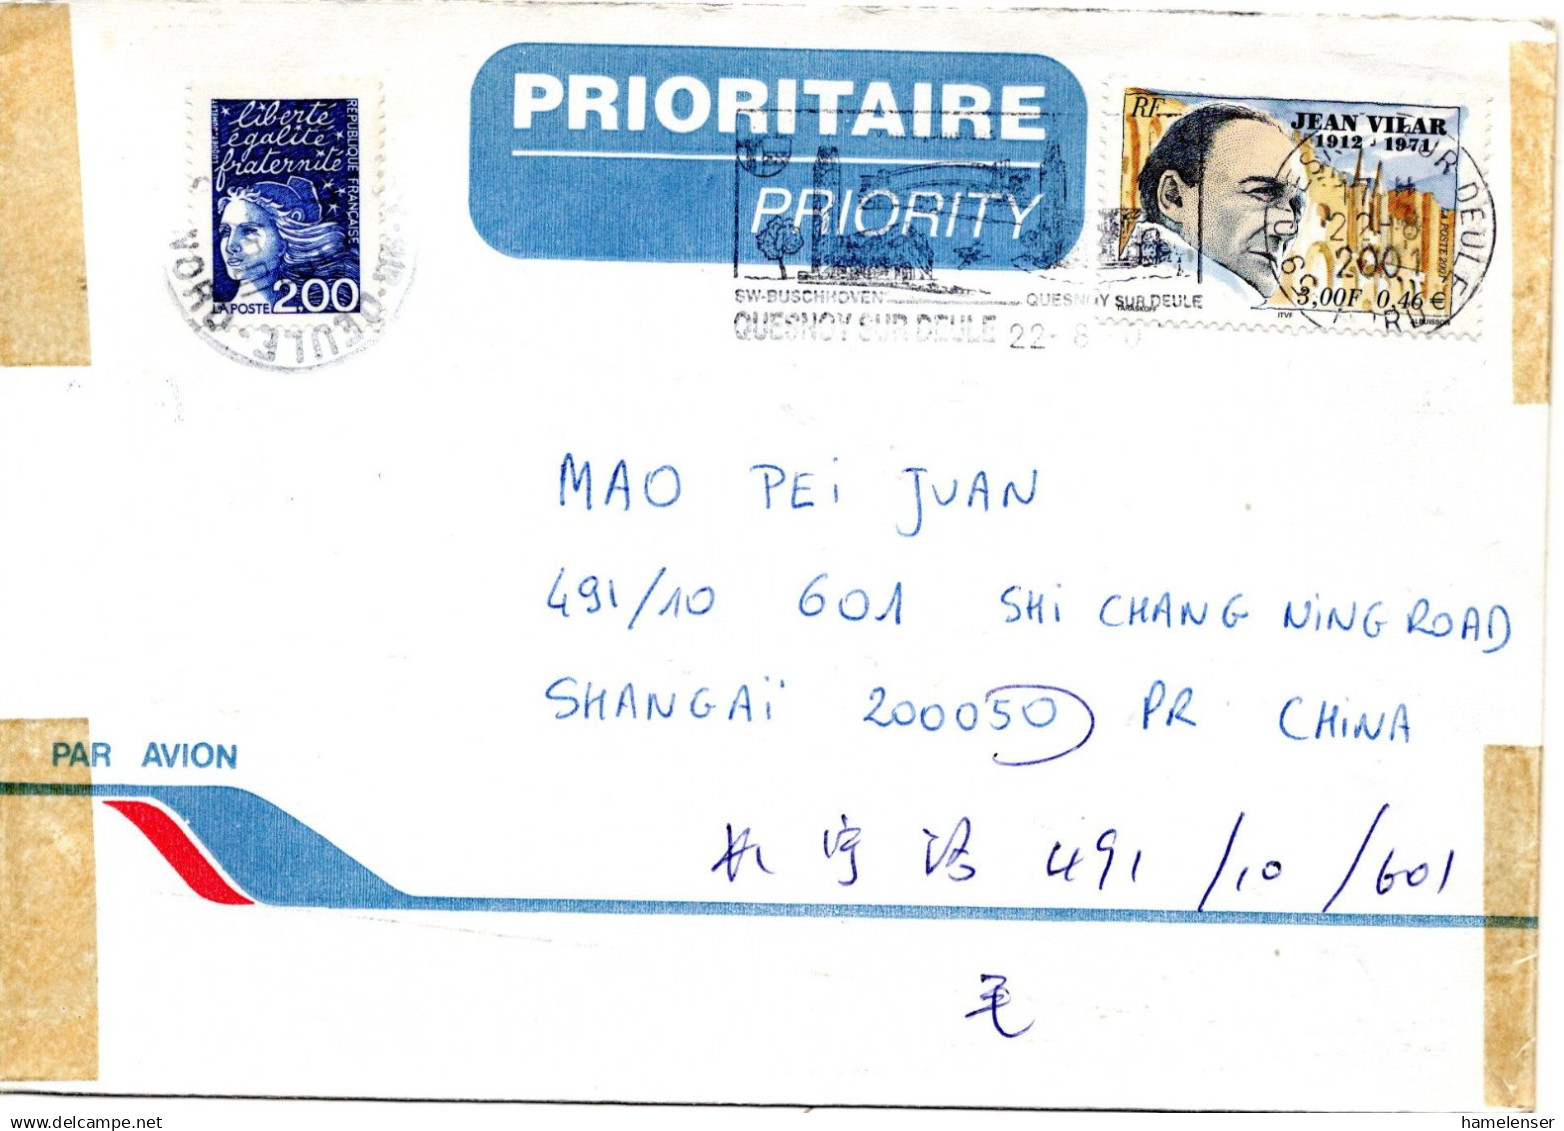 PRIORITAIRE
PRIORITY
liberté
égalité
fraternité
RÉPUBLIQUE FRANÇAISE
LA POSTE 2.00
RF
JEAN VILAR
1912 - 1971
LA POSTE 2001
3,00F 0,46 €
TARASKOFF
ITVF
SW-BUSCHHOVEN
QUESNOY SUR DEULE
QUESNOY SUR DEULE 22-8
22-8
2001
MAO PEi JUAN
491/10 601 SHi CHANG NiNG ROAD
SHANGAï 200050 PR CHiNA
PAR AVION
宁 路 491 /10 /601
毛
hamelenser